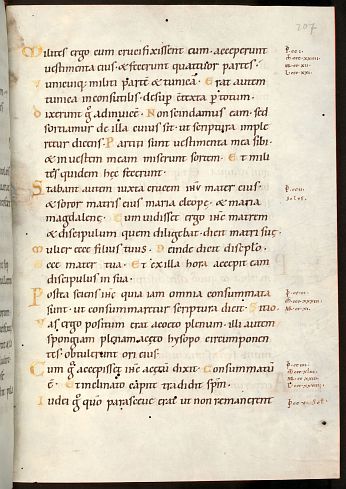 207
Milites ergo cum crucifixissent eum · acceperunt
vestimenta eius · & fecerunt quattuor partes ·
unicuiq; militi parte & tunica · Erat autem
tunica inconsutilis · desup contexta p totum ·
dixerunt g adinuice · Non scindamus eam · sed
sortiamur de illa cuius sit · ut scriptura imple
retur dicens · Partiti sunt uestimenta mea sibi ·
& in uestem meam miserunt sortem · Et mili
tes quidem hec fecerunt
Stabant autem iuxta crucem ihu mater eius ·
& soror matris eius maria cleope · & maria
magdalene · Cum uidisset ergo ihc matrem
& discipulum quem diligebat · dicit matri sue ·
mulier ecce filius tuus · Deinde dicit discipulo ·
ecce mater tua · Et ex illa hora accepit eam
discipulus in sua ·
Postea sciens ihc quia iam omnia consummata
sunt · ut consummaretur scriptura dicit · Sitio ·
Vas ergo positum erat aceto plenum · illi autem
spongiam plenam aceto hysopo circumponen
tes · obtulerunt ori eius ·
Cum g accepisset ihc acetu dixit · Consummatu
e · Et inclinato capite tradidit spm ·
Iudei g quo parasceue erat ut non remanerent